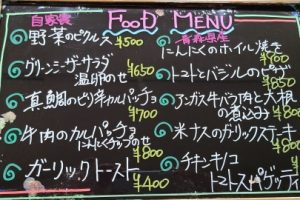 FOOD MENU
自家製
野菜のピクルス ¥500
グリーンシーザーサラダ
温卵のせ ¥650
真鯛のピリ辛カルパッチョ
¥700
牛肉のカルパッチョ
にんにくチップのせ ¥800
ガーリックトースト
¥400
青森県産
にんにくのホイル焼き
トマトとバジルのピ
アンガス牛バラ肉と大根
の煮込み ¥800
米ナスのガーリックステーキ
¥800
チキンキノコ
トマトスパゲッティ